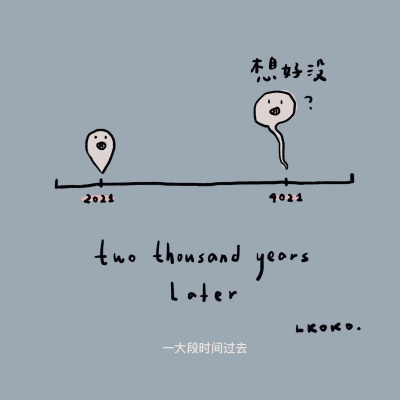 想好没
?
2021
4021
two thousand years
Later
LKOKO.
一大段时间过去